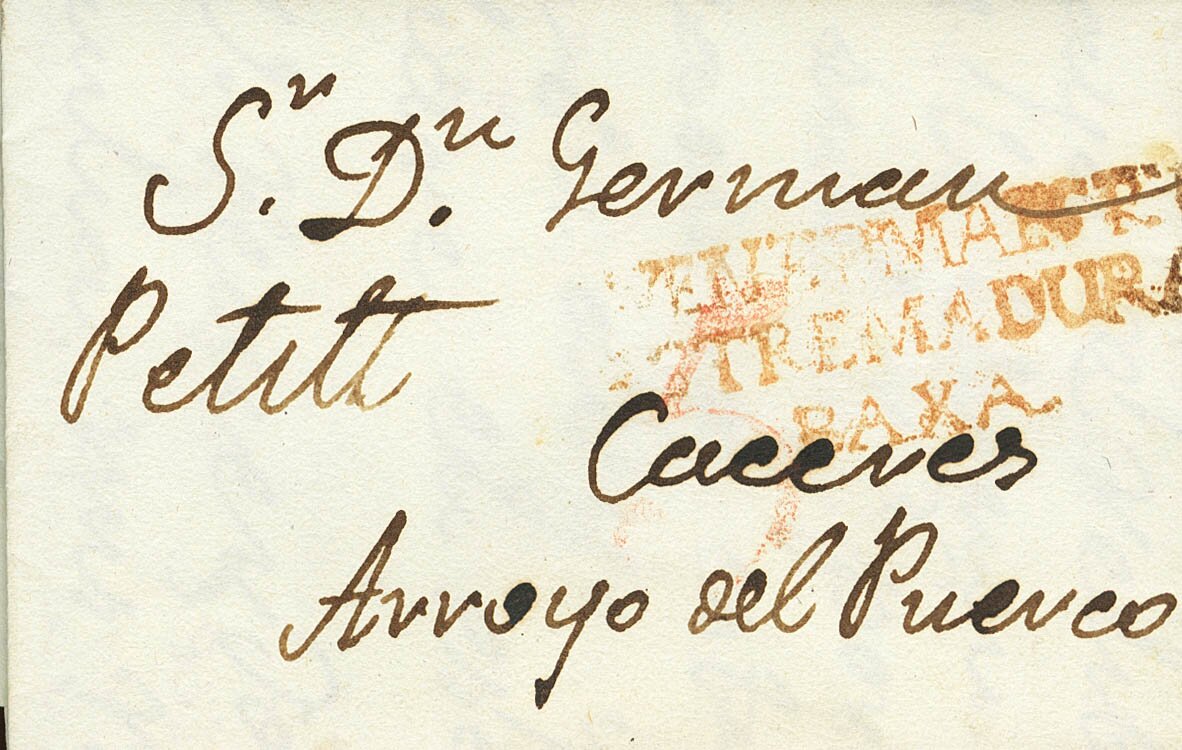 Sr. Dn. German
Petitt
EXTREMADURA
BAXA.
Caceres
Arroyo del Puerco